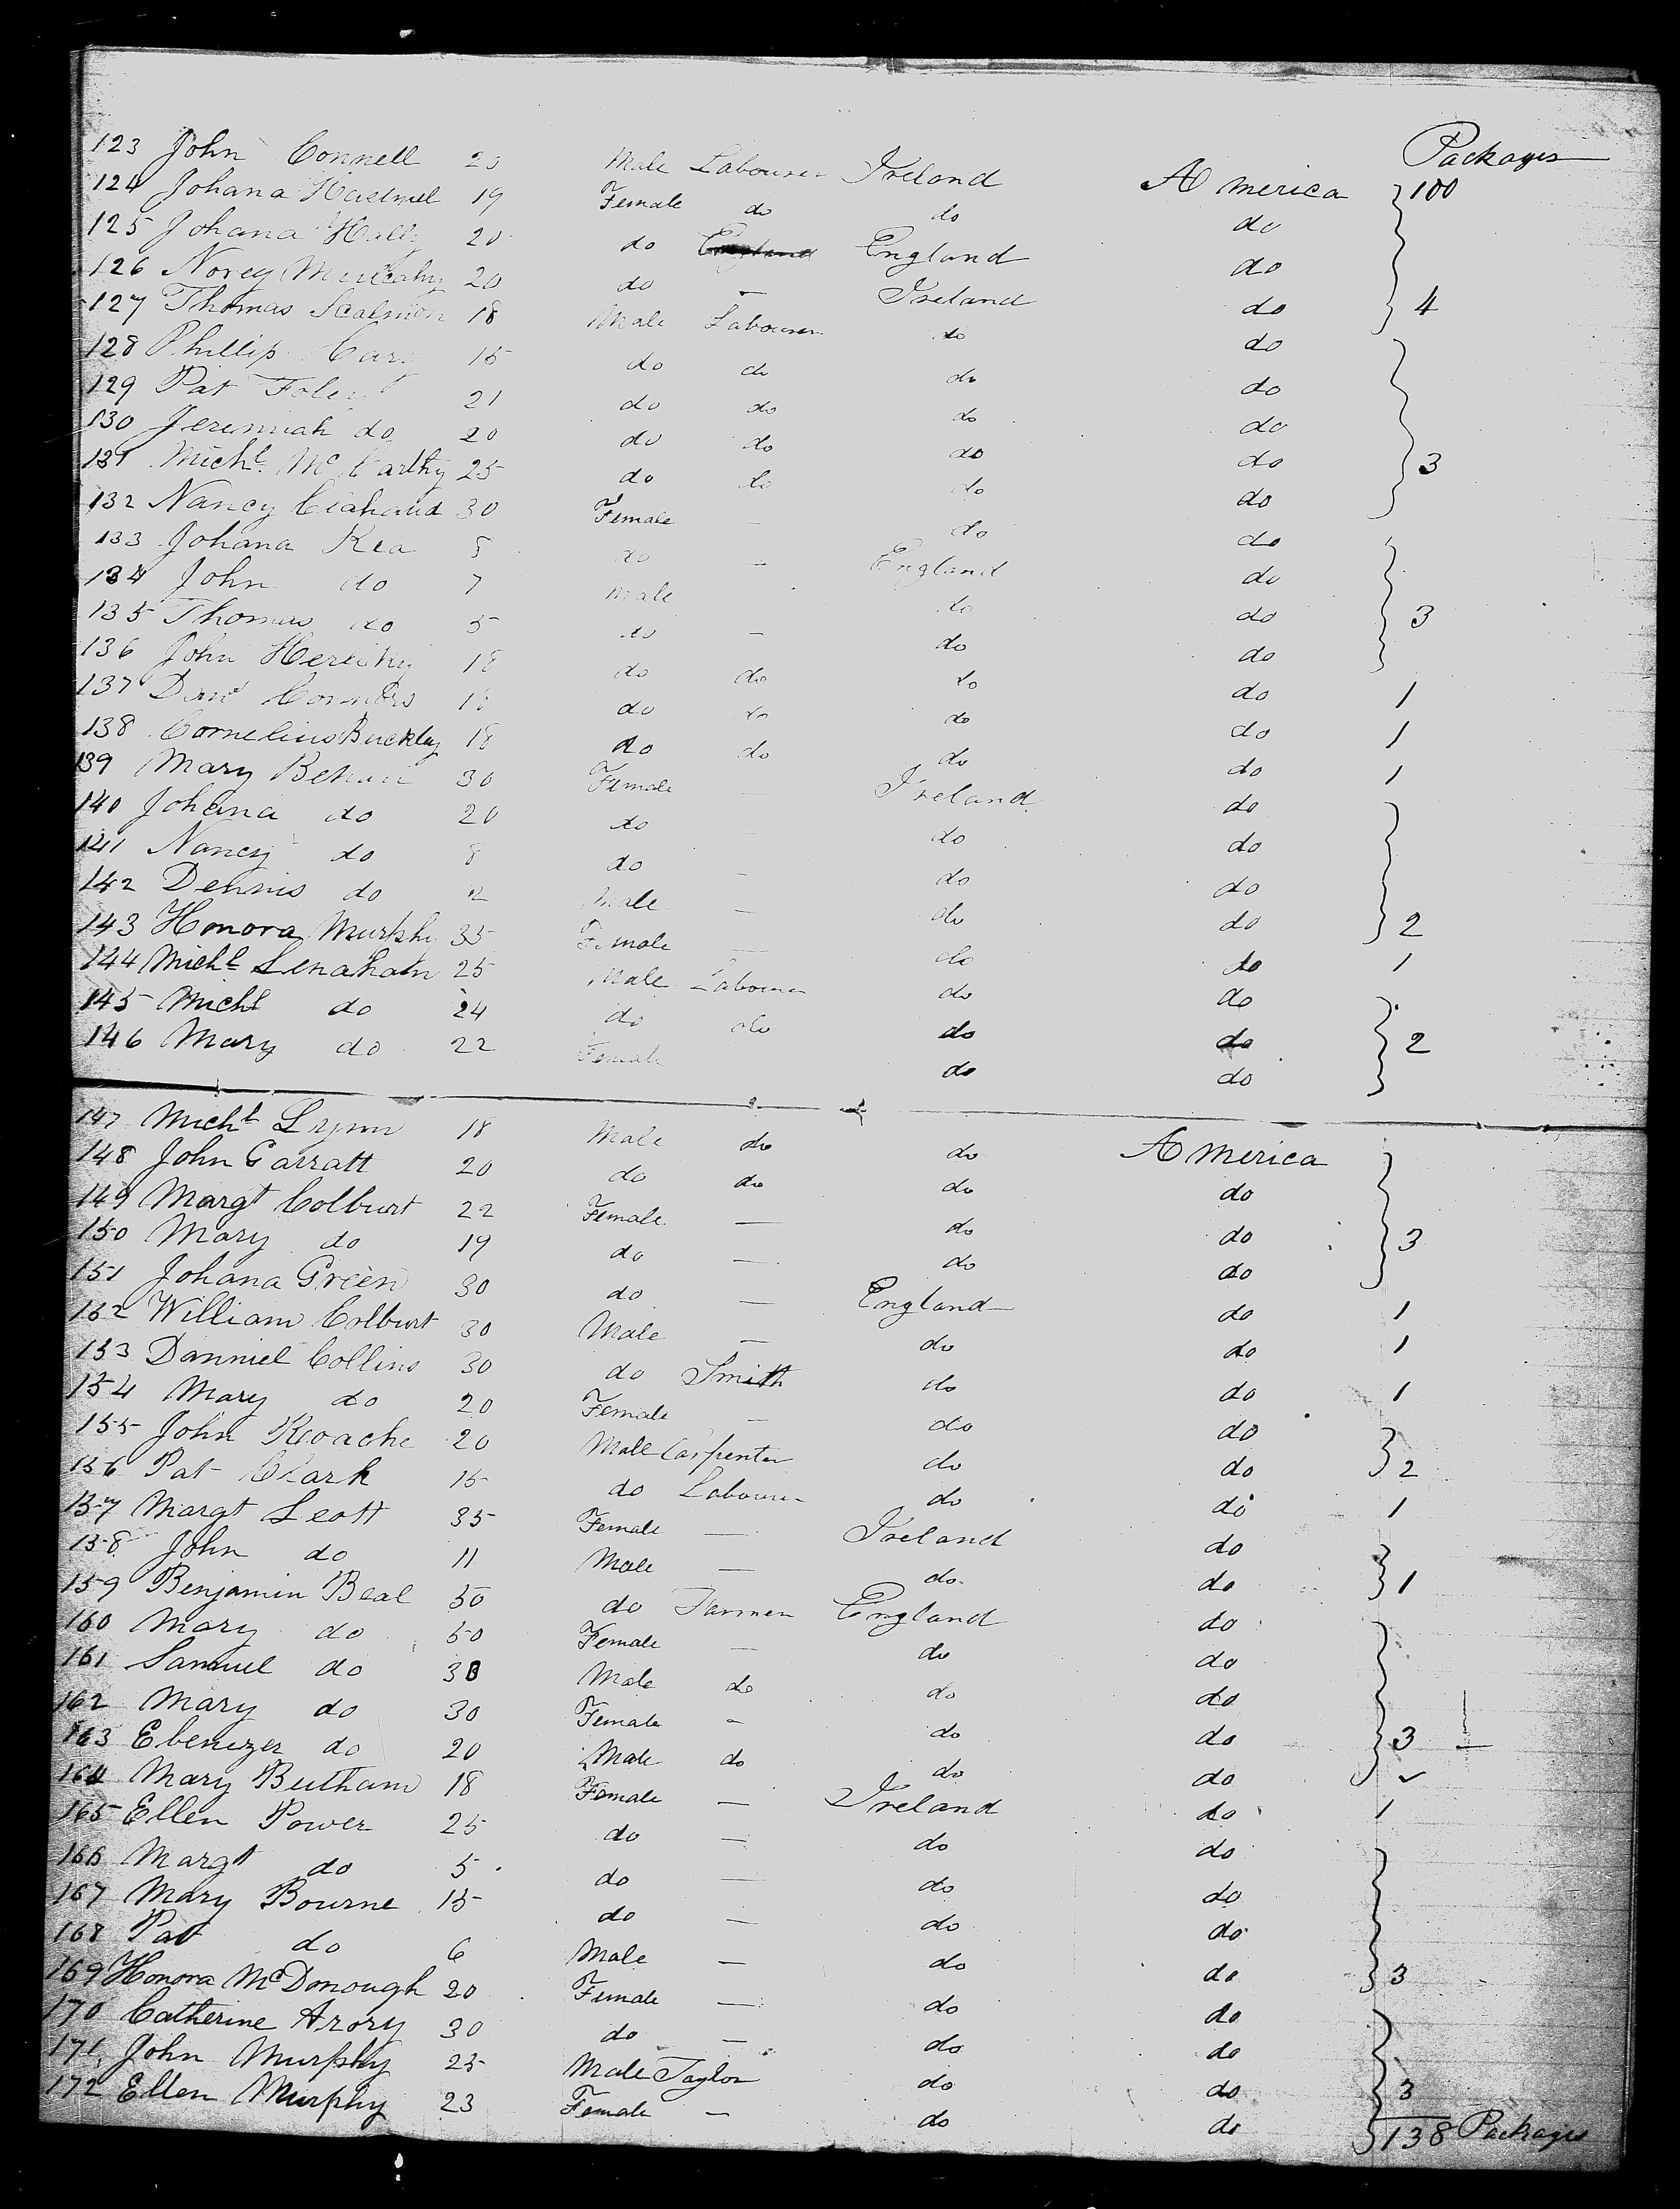 Packages
123 John Connell 20 Male Labourer Ireland America 100
124 Johana 19 Female do do do
125 Johana Hally 20 do England England do
126 Norey Mulcahy 20 do — Ireland do 4
127 Thomas Scalmon 18 Male Labourer do do
128 Phillip Cary 15 do do do do
129 Pat Foley 21 do do do do
130 Jeremiah do 20 do do do do 3
131 Michl. McCarthy 25 do do do do
132 Nancy 30 Female — do do
133 Johana Rea 8 do — England do
134 John do 7 Male do do 3
135 Thomas do 5 do — do do
136 John Herlihy 18 do do do do 1
137 Danl Connors 18 do do do do 1
138 Cornelius Buckley 18 do do do do 1
139 Mary Behan 30 Female — Ireland do
140 Johana do 20 do do do
141 Nancy do 8 do — do do
142 Dennis do 2 Male — do do 2
143 Honora Murphy 35 Female — do do 1
144 Michl Lenahan 25 Male Labourer do do
145 Michl do 24 do do do do 2
146 Mary do 22 Female do do
147 Michl Lynn 18 Male do do America
148 John Garratt 20 do do do do
149 Margt Colburt 22 Female — do do 3
150 Mary do 19 do — do do
151 Johana Green 30 do — England do 1
152 William Colburt 30 Male — do do 1
153 Danniel Collins 30 do Smith do do 1
154 Mary do 20 Female — do do
155 John Roache 20 Male Carpenter do do 2
156 Pat Clark 15 do Labourer do do 1
157 Margt Leott 35 Female — Ireland do
158 John do 11 Male — do do 1
159 Benjamin Beal 50 do Farmer England do
160 Mary do 50 Female — do do
161 Samuel do 30 Male do do do
162 Mary do 30 Female — do do 3
163 Ebenezer do 20 Male do do do
164 Mary 18 Female — Ireland do 1
165 Ellen Power 25 do — do do
166 Margt do 5 do — do do
167 Mary Bourne 15 do — do do
168 Pat do 6 Male — do do 3
169 Honora McDonough 20 Female — do do
170 Catherine Arory 30 do — do do
171 John Murphy 25 Male Taylor do do 3
172 Ellen Murphy 23 Female — do do
138 Packages